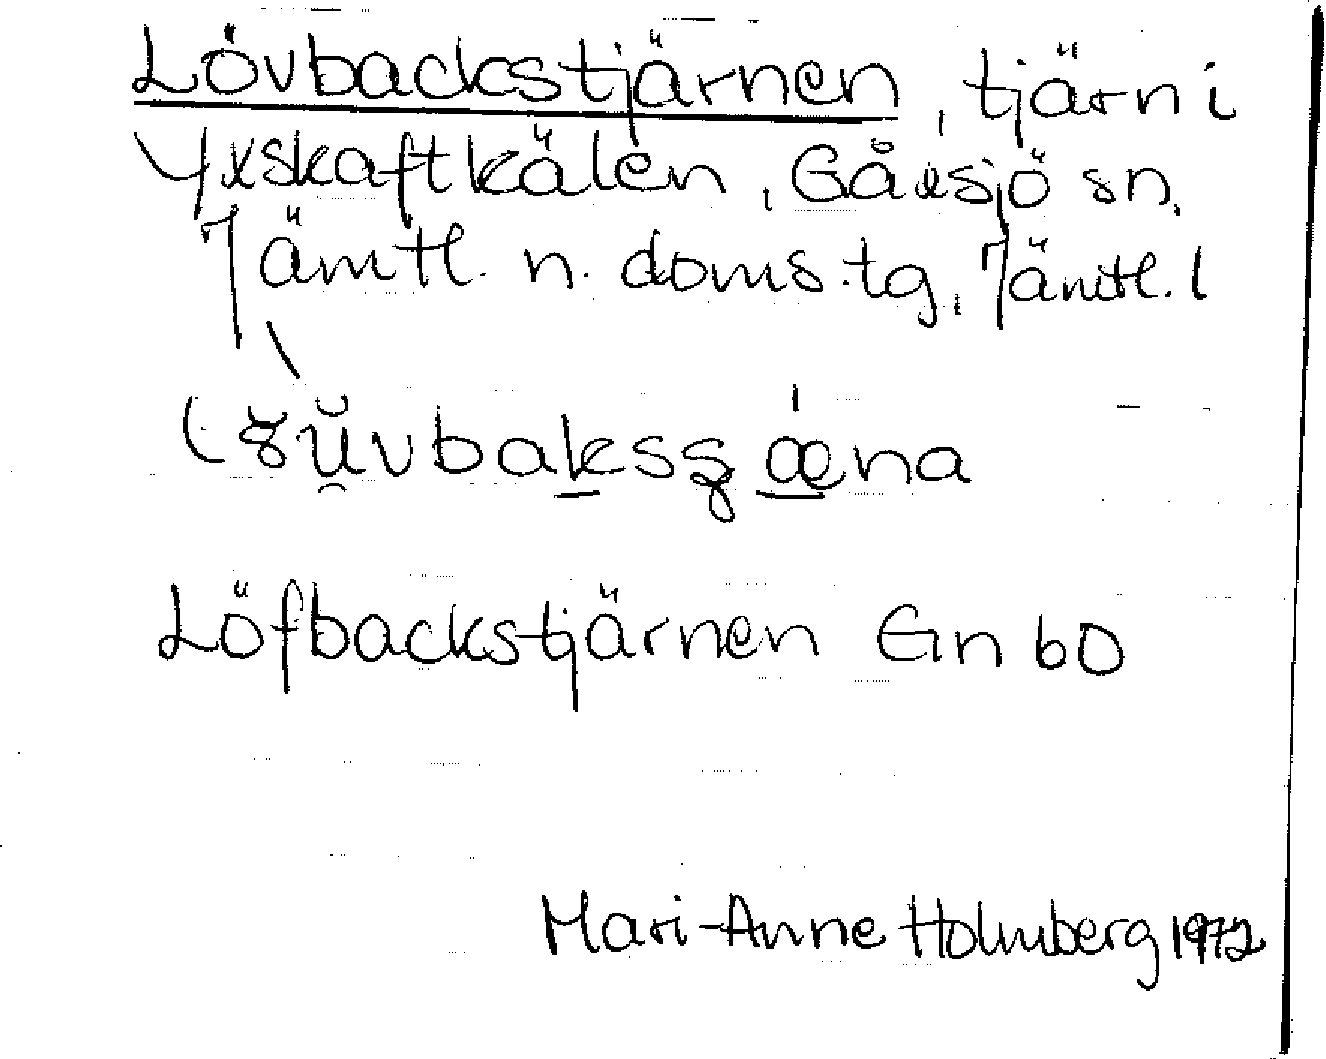 Lövbackstjärnen, tjärn i
Yxskaftkälen, Gåxsjö sn,
Jämtl. n. doms.tg, Jämtl. l
Löfbackstjärnen Gn 60
Mari-Anne Holmberg 1972